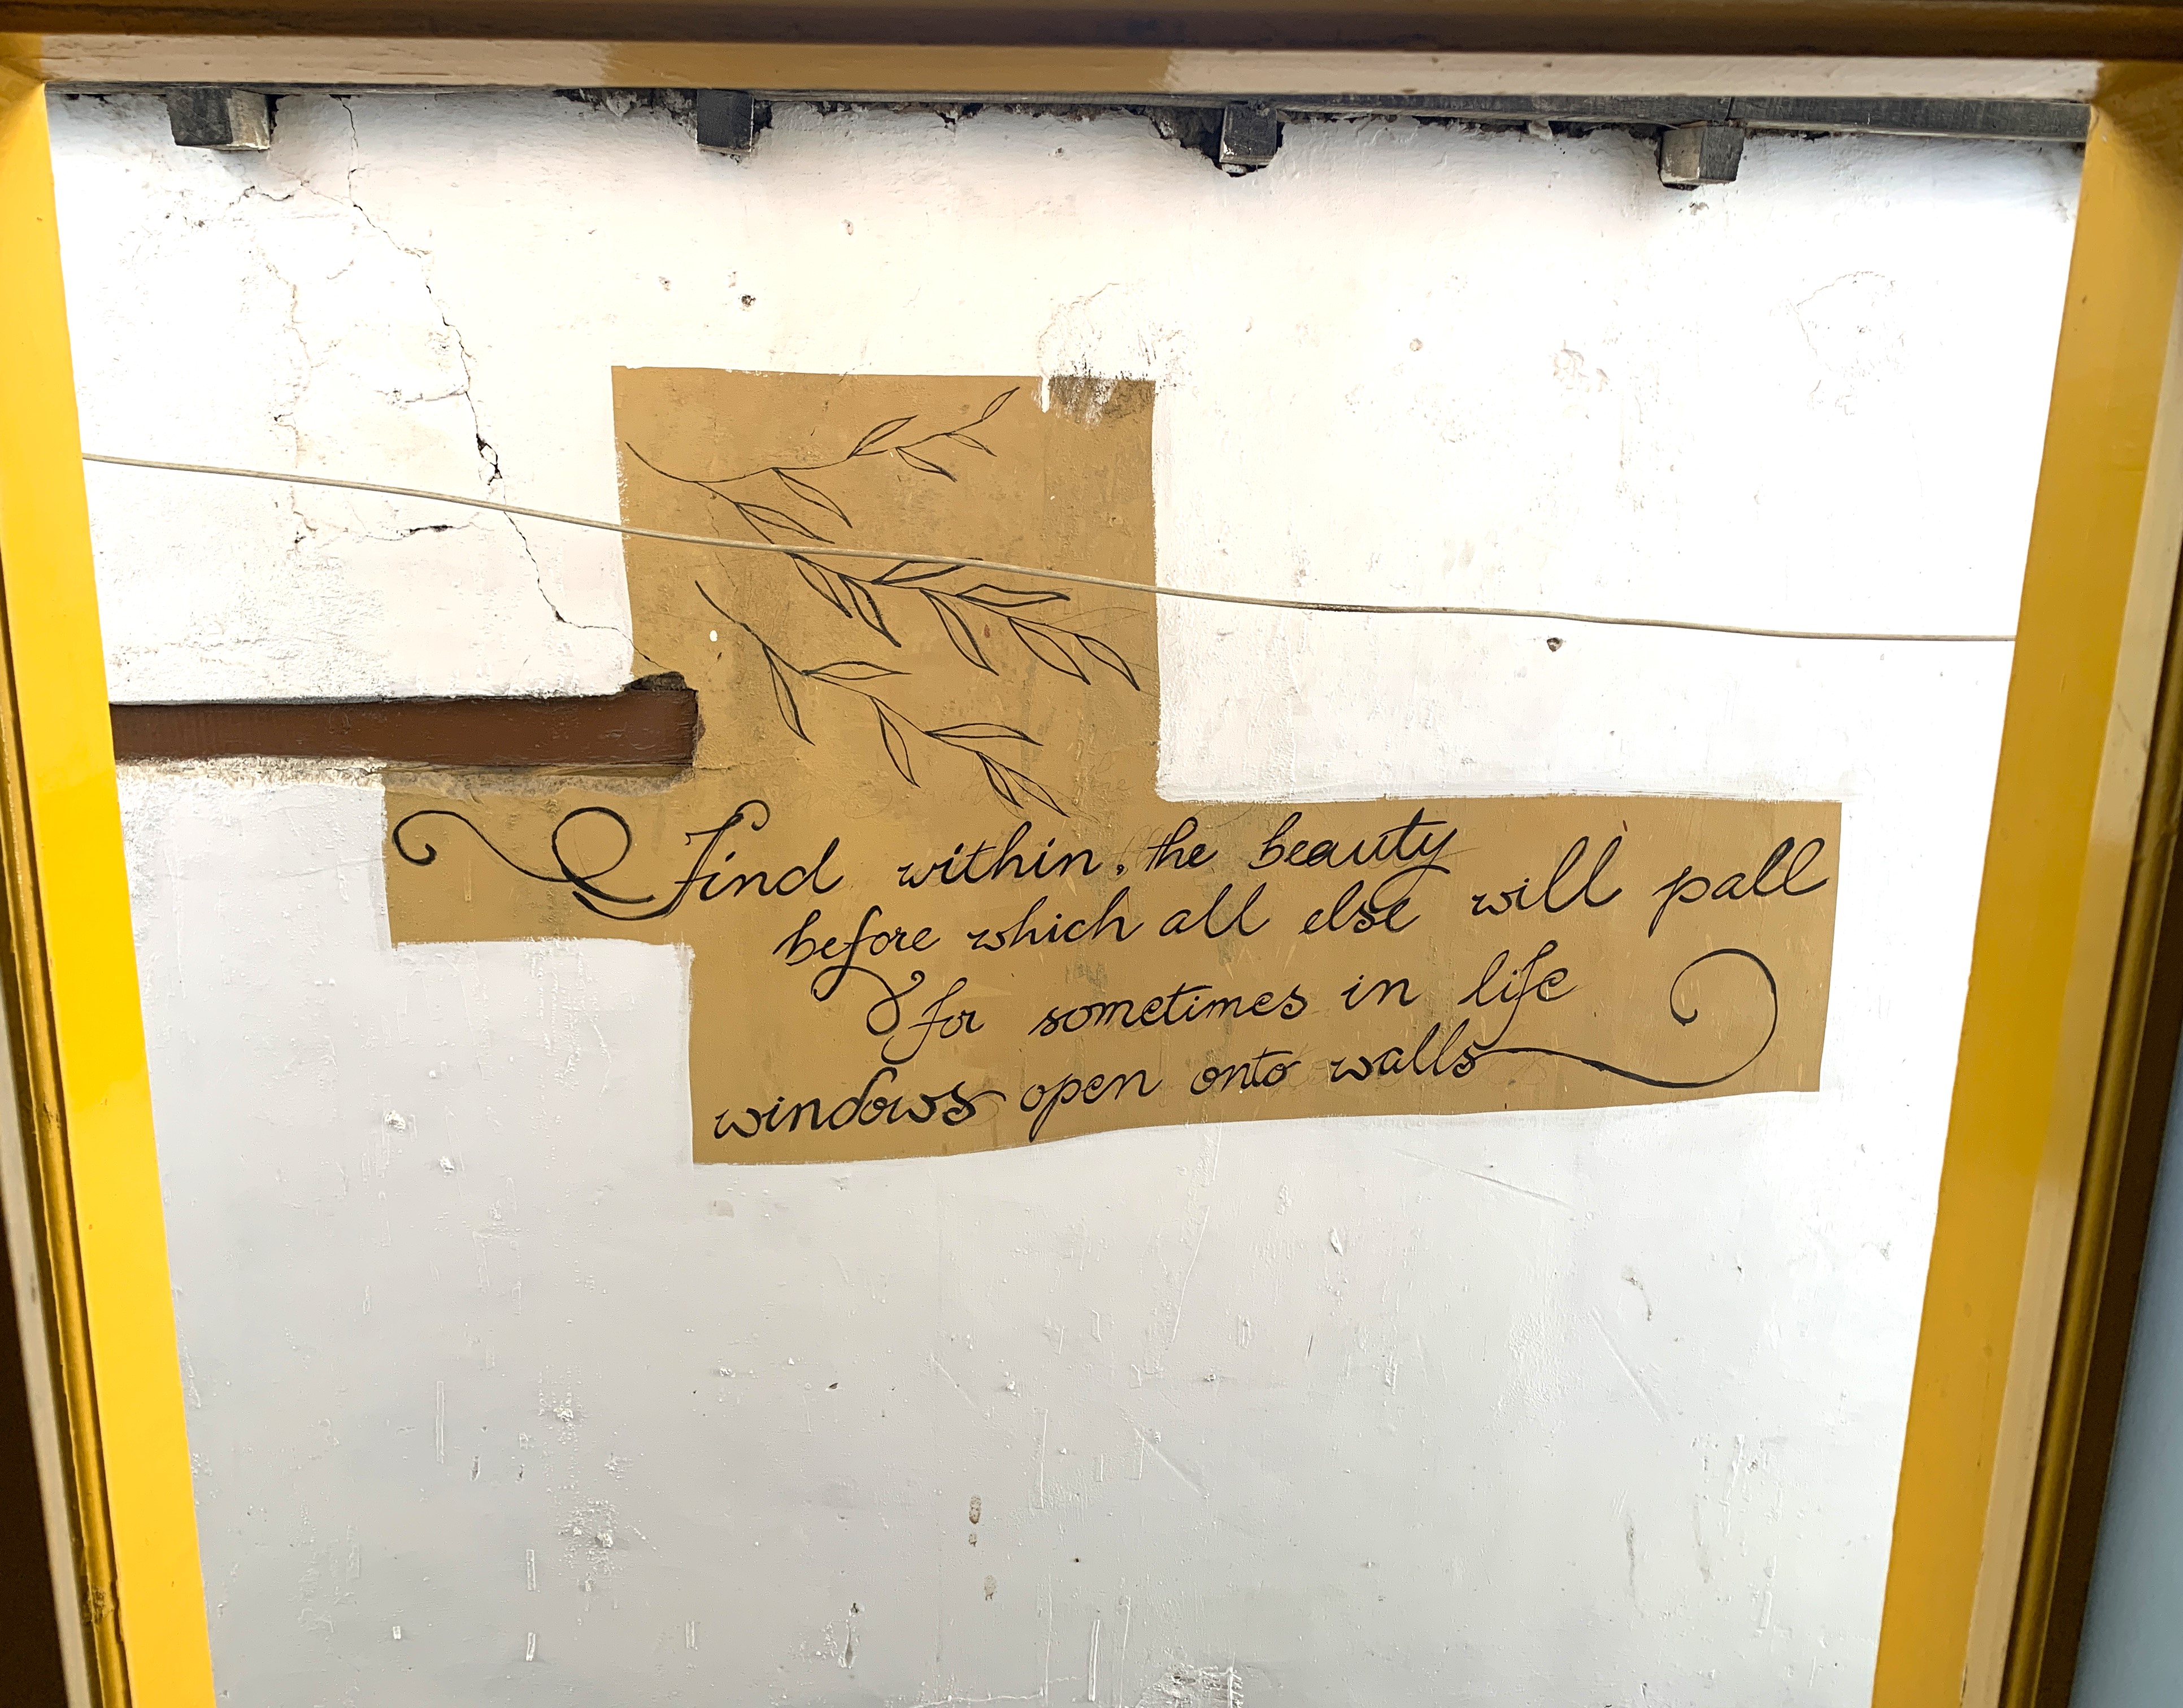 Find within, the beauty
before which all else will pall
for sometimes in life
windows open onto walls